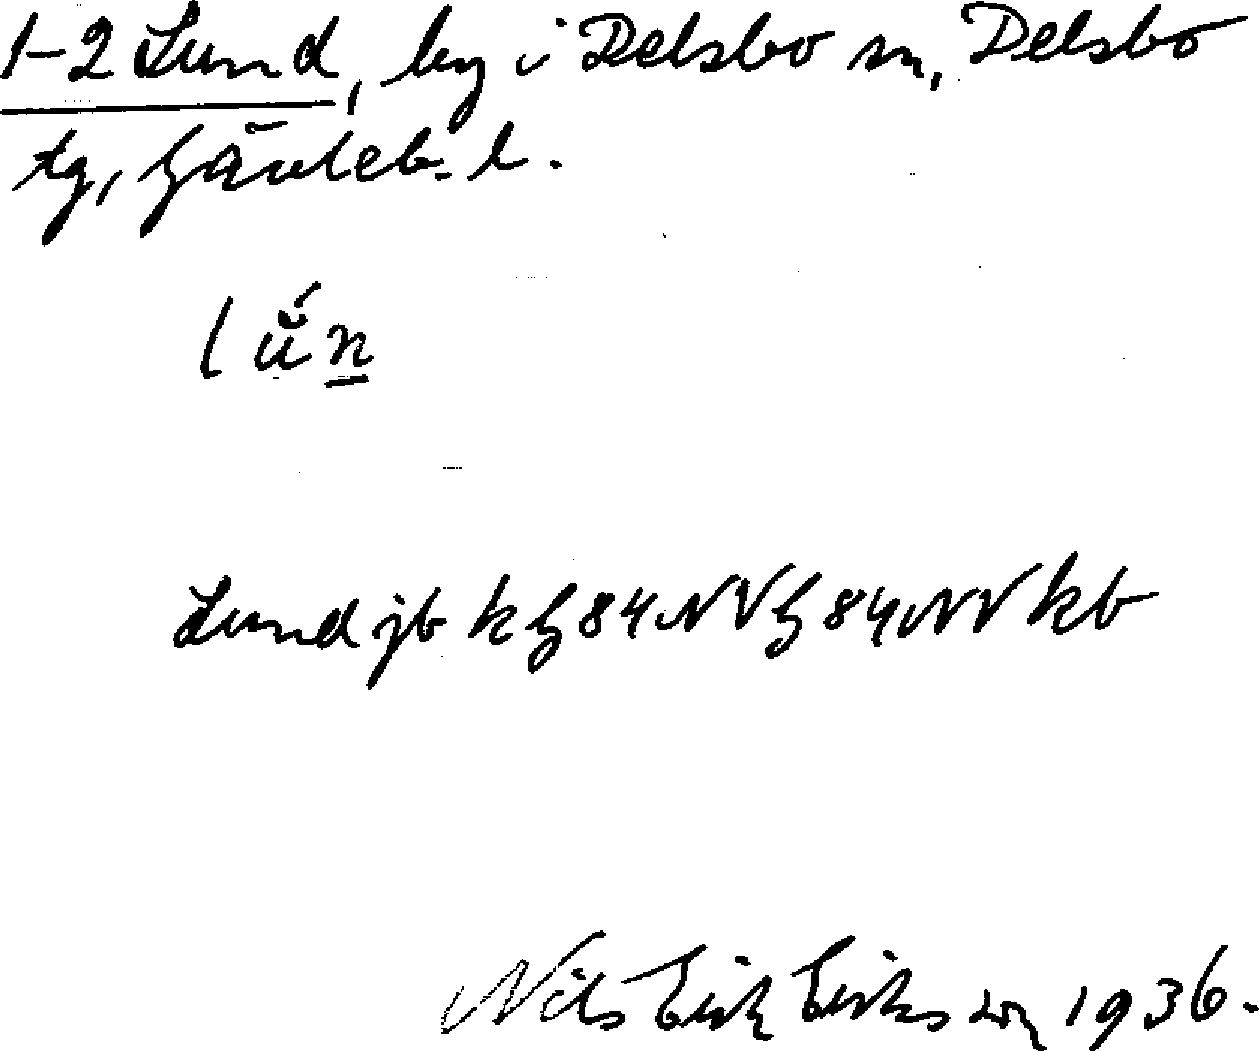 1-2 Lund, by i Delsbo sn, Delsbo
tg, Gävleb. l.
lŭ́n̲
Lund jb k G 84 NV G 84 NV kb
Nils Erik Eriksson 1936.